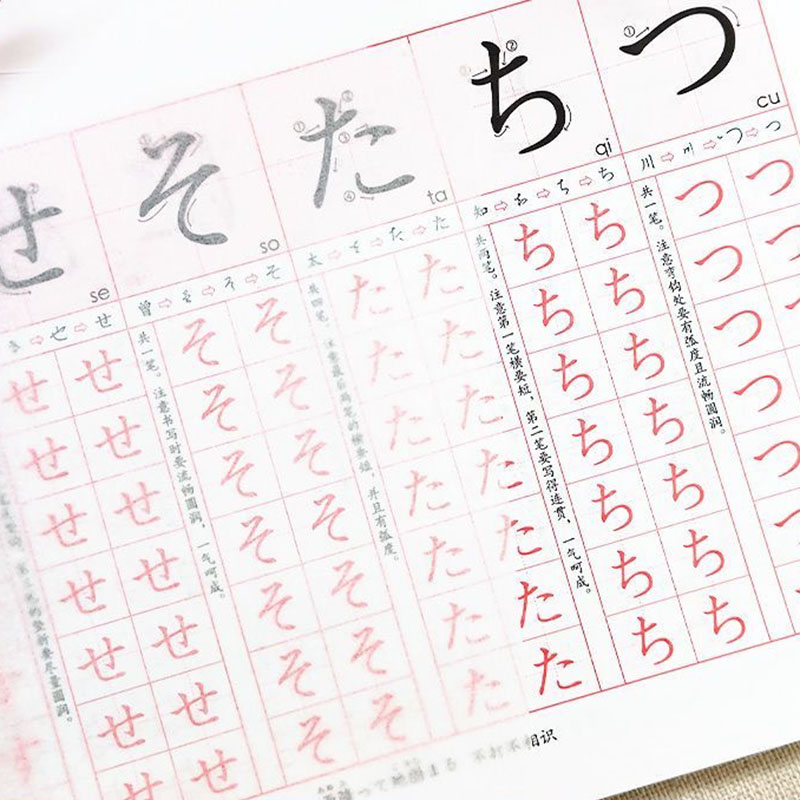 せ そ た ち つ
se so ta qi cu
せ
曾 そ そ
太 た た
知 ち ち
川 つ つ
せ せ
せ せ
せ せ
せ せ
せ せ
せ せ
せ せ
共一笔。注意书写时要流畅圆润，一气呵成。
そ そ
そ そ
そ そ
そ そ
そ そ
そ そ
そ そ
共四笔。注意最后两笔的横要短，并且有弧度。
た た
た た
た た
た た
た た
た た
た た
共两笔。注意第一笔横要短，第二笔要写得连贯，一气呵成。
ち ち
ち ち
ち ち
ち ち
ち ち
ち ち
ち ち
共一笔。注意弯钩处要有弧度且流畅圆润。
つ つ
つ つ
つ つ
つ
つ
つ
って地固まる 不打不相识